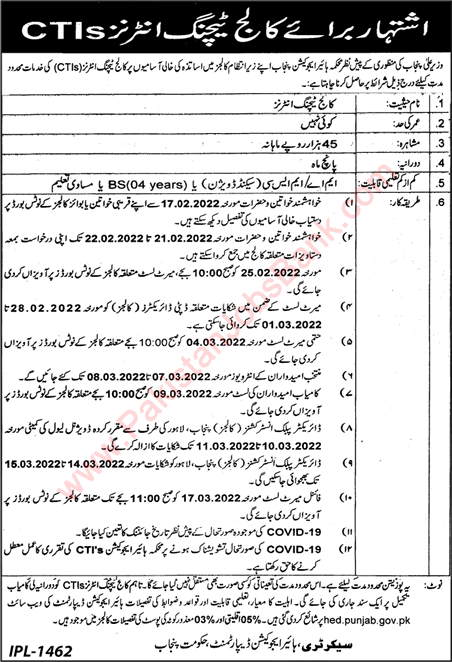 اشتہار برائے کالج ٹیچنگ انٹرنز CTIs
وزیراعلیٰ پنجاب کی منظوری کے پیش نظر محکمہ ہائیر ایجوکیشن پنجاب اپنے زیر انتظام کالجز میں اساتذہ کی خالی آسامیوں پر کالج ٹیچنگ انٹرنز (CTIs) کی خدمات محدود
مدت کیلئے درج ذیل شرائط پر حاصل کرنا چاہتا ہے:۔
1. نام حیثیت: کالج ٹیچنگ انٹرنز
2. عمر کی حد: کوئی نہیں
3. مشاہرہ: 45 ہزار روپے ماہانہ
4. دورانیہ: پانچ ماہ
5. کم از کم تعلیمی قابلیت: ایم اے/ ایم ایس سی (سیکنڈ ڈویژن) یا BS(04 years) یا مساوی تعلیم
6. طریقہ کار: ۱) خواہشمند خواتین و حضرات مورخہ 17.02.2022 سے اپنے قریبی خواتین یا بوائز کالجز کے نوٹس بورڈ پر
دستیاب خالی آسامیوں کی تفصیل دیکھ سکتے ہیں۔
۲) خواہشمند خواتین و حضرات مورخہ 21.02.2022 تا 22.02.2022 تک اپنی درخواست بمعہ
دستاویزات متعلقہ کالج میں جمع کروا سکتے ہیں۔
۳) مورخہ 25.02.2022 کو صبح 10:00 بجے، میرٹ لسٹ متعلقہ کالجز کے نوٹس بورڈز پر آویزاں کر دی
جائے گی۔
۴) میرٹ لسٹ کے ضمن میں شکایات متعلقہ ڈپٹی ڈائریکٹرز (کالجز) کو مورخہ 28.02.2022 تا
01.03.2022 تک کروائی جا سکتی ہے۔
۵) حتمی میرٹ لسٹ مورخہ 04.03.2022 کو صبح 10:00 بجے متعلقہ کالجز کے نوٹس بورڈز پر آویزاں
کر دی جائے گی۔
۶) منتخب امیدواران کے انٹرویوز مورخہ 07.03.2022 تا 08.03.2022 تک کئے جائیں گے۔
۷) کامیاب امیدواران کی لسٹ مورخہ 09.03.2022 کو صبح 10:00 بجے متعلقہ کالجز کے نوٹس بورڈز پر
آویزاں کر دی جائے گی۔
۸) ڈائریکٹر پبلک انسٹرکشنز (کالجز) پنجاب، لاہور کی طرف سے مقرر کردہ ڈویژنل لیول کی کمیٹی مورخہ
10.03.2022 تا 11.03.2022 تک شکایات کا ازالہ کرے گی۔
۹) ڈائریکٹر پبلک انسٹرکشنز (کالجز) پنجاب، لاہور کو شکایات مورخہ 14.03.2022 تا 15.03.2022
تک بھجوائی جا سکیں گی۔
۱۰) فائنل میرٹ لسٹ مورخہ 17.03.2022 کو صبح 11:00 بجے تک متعلقہ کالجز کے نوٹس بورڈز پر
آویزاں کر دی جائے گی۔
۱۱) COVID-19 کی موجودہ صورتحال کے پیش نظر تاریخ جائننگ کا تعین کیا جائیگا۔
۱۲) COVID-19 کی صورتحال تشویشناک ہونے پر محکمہ ہائیر ایجوکیشن CTI's کی تقرری کا عمل معطل
کرنے کا حق رکھتا ہے۔
نوٹ: یہ پوزیشن محدود مدت کیلئے ہے۔ اس محدود مدت کی تعیناتی کو کسی صورت بھی مستقل نہیں کیا جائے گا۔ تاہم کالج ٹیچنگ انٹرنز CTIs کو دورانیہ کی کامیاب
تکمیل پر ایک سند جاری کی جائے گی۔ اہلیت کا معیار، تعلیمی قابلیت اور قواعد و ضوابط کی تفصیلات ہائیر ایجوکیشن ڈیپارٹمنٹ کی ویب سائٹ
hed.punjab.gov.pk پر شائع کر دی گئی ہیں۔ 05% اقلیتی اور 03% معذور کوٹہ کی پوسٹ کی تفصیلات کالجز میں موجود ہیں۔
سیکرٹری، ہائیر ایجوکیشن ڈیپارٹمنٹ، حکومت پنجاب
IPL-1462
www.PakistanJobsBank.com